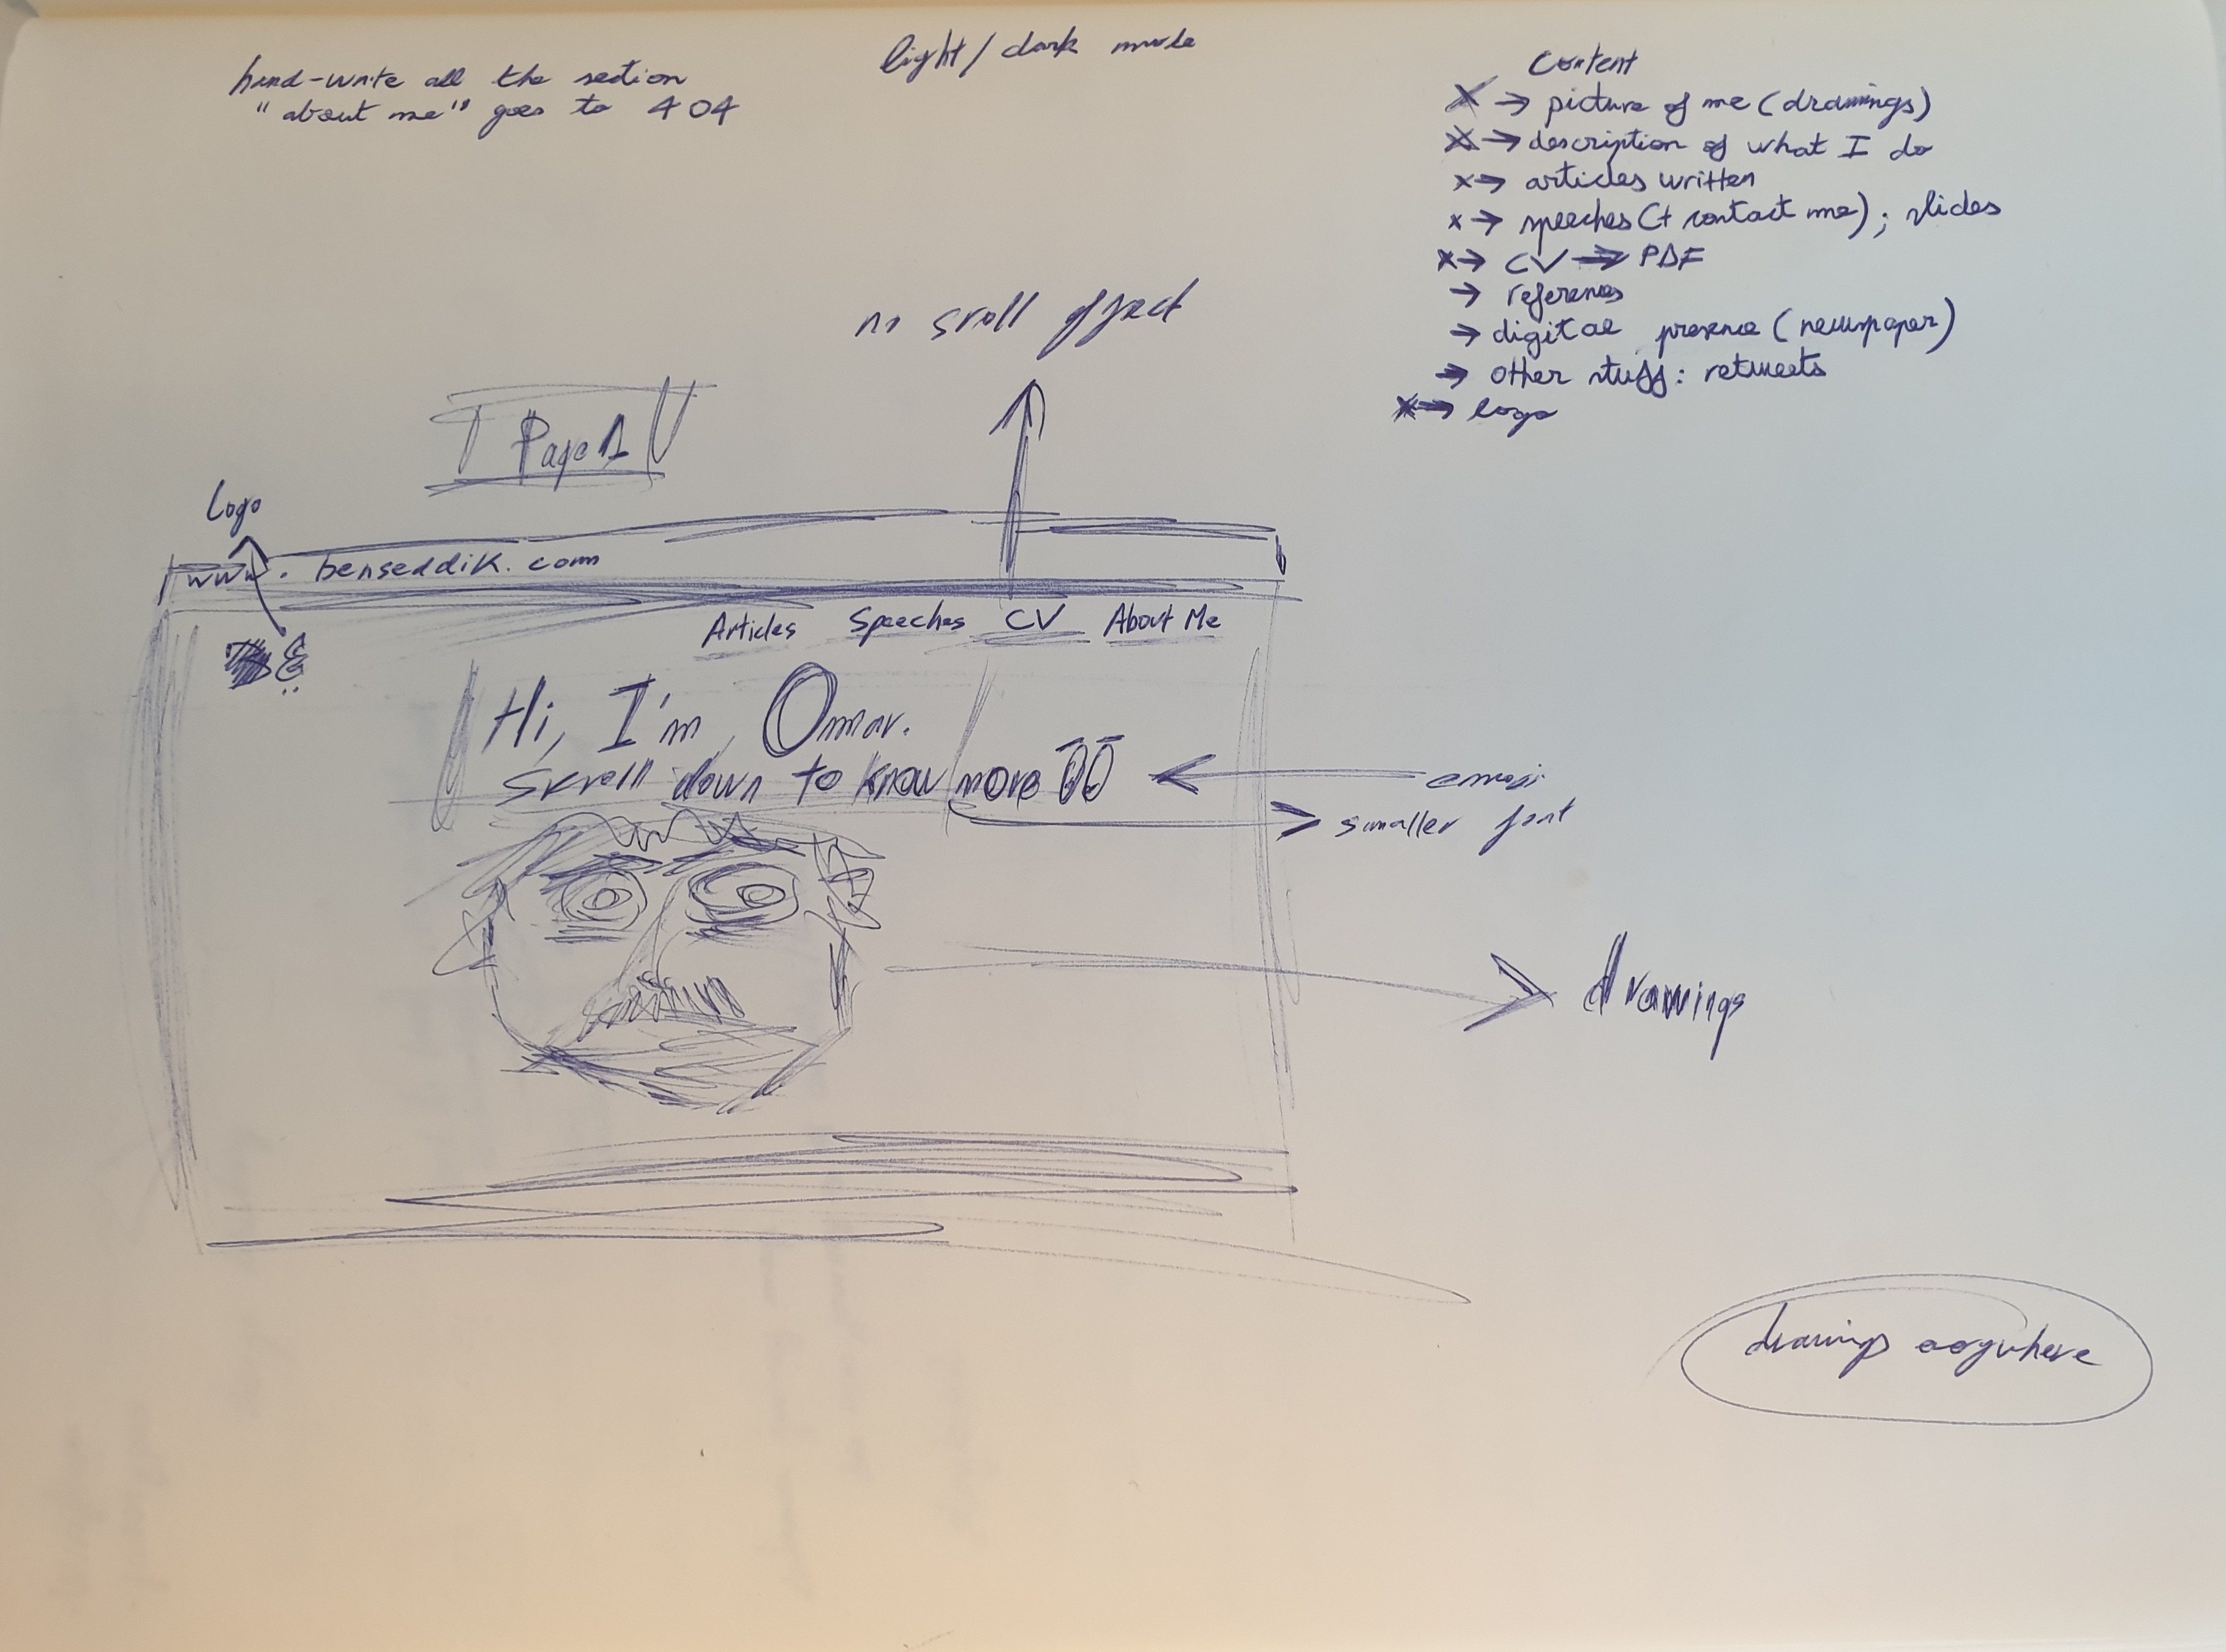 hand-write all the section
"about me" goes to 404
light/dark mode
Content
X → picture of me (drawings)
X → description of what I do
x → articles written
x → speeches (+ contact me); slides
x → CV → PDF
→ references
→ digital presence (newspaper)
→ other stuff: retweets
x → logo
no scroll effect
Page 1
Logo
www. benseddik. com
Articles Speeches CV About Me
Hi, I'm Omar.
Scroll down to know more
emoji
smaller font
drawings
drawings anywhere